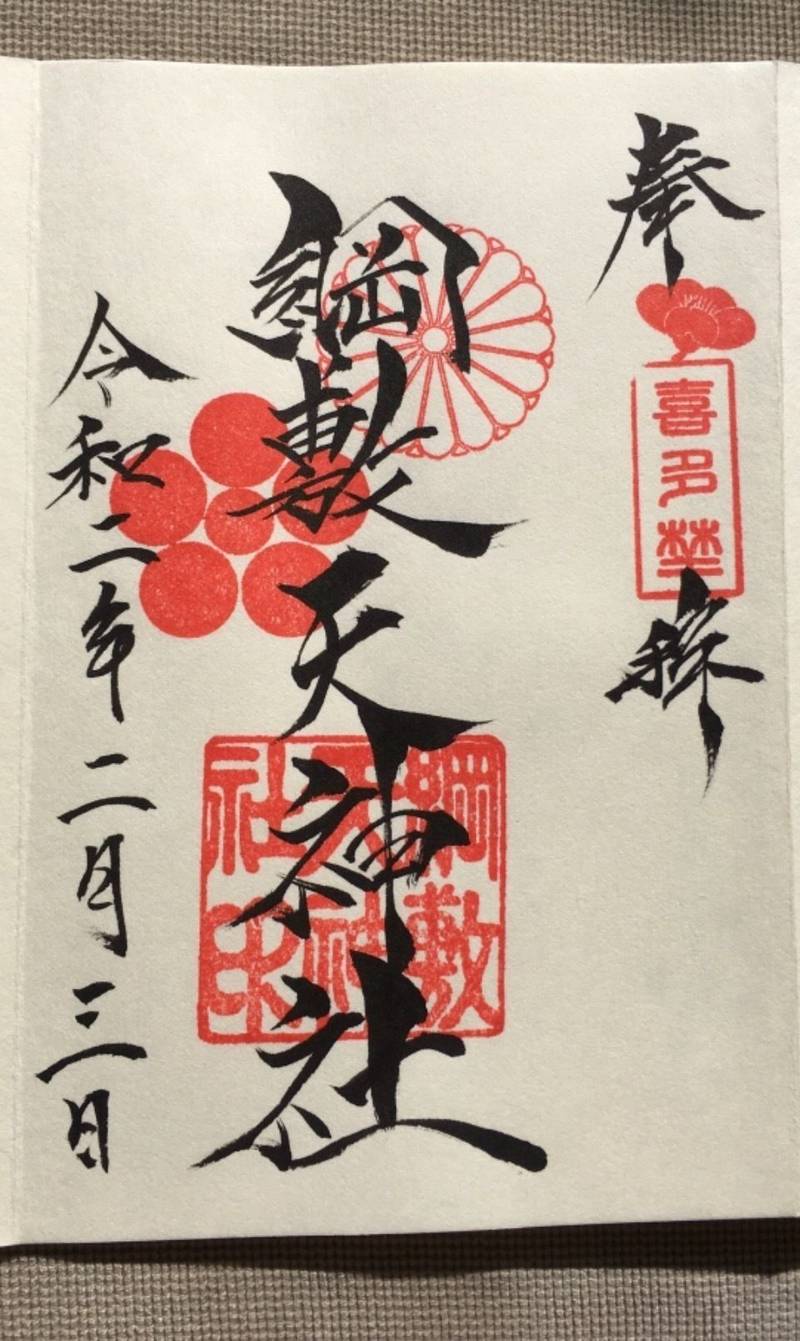 奉拝
喜多埜
綱敷天神社
綱敷
天神
社印
令和二年二月三日